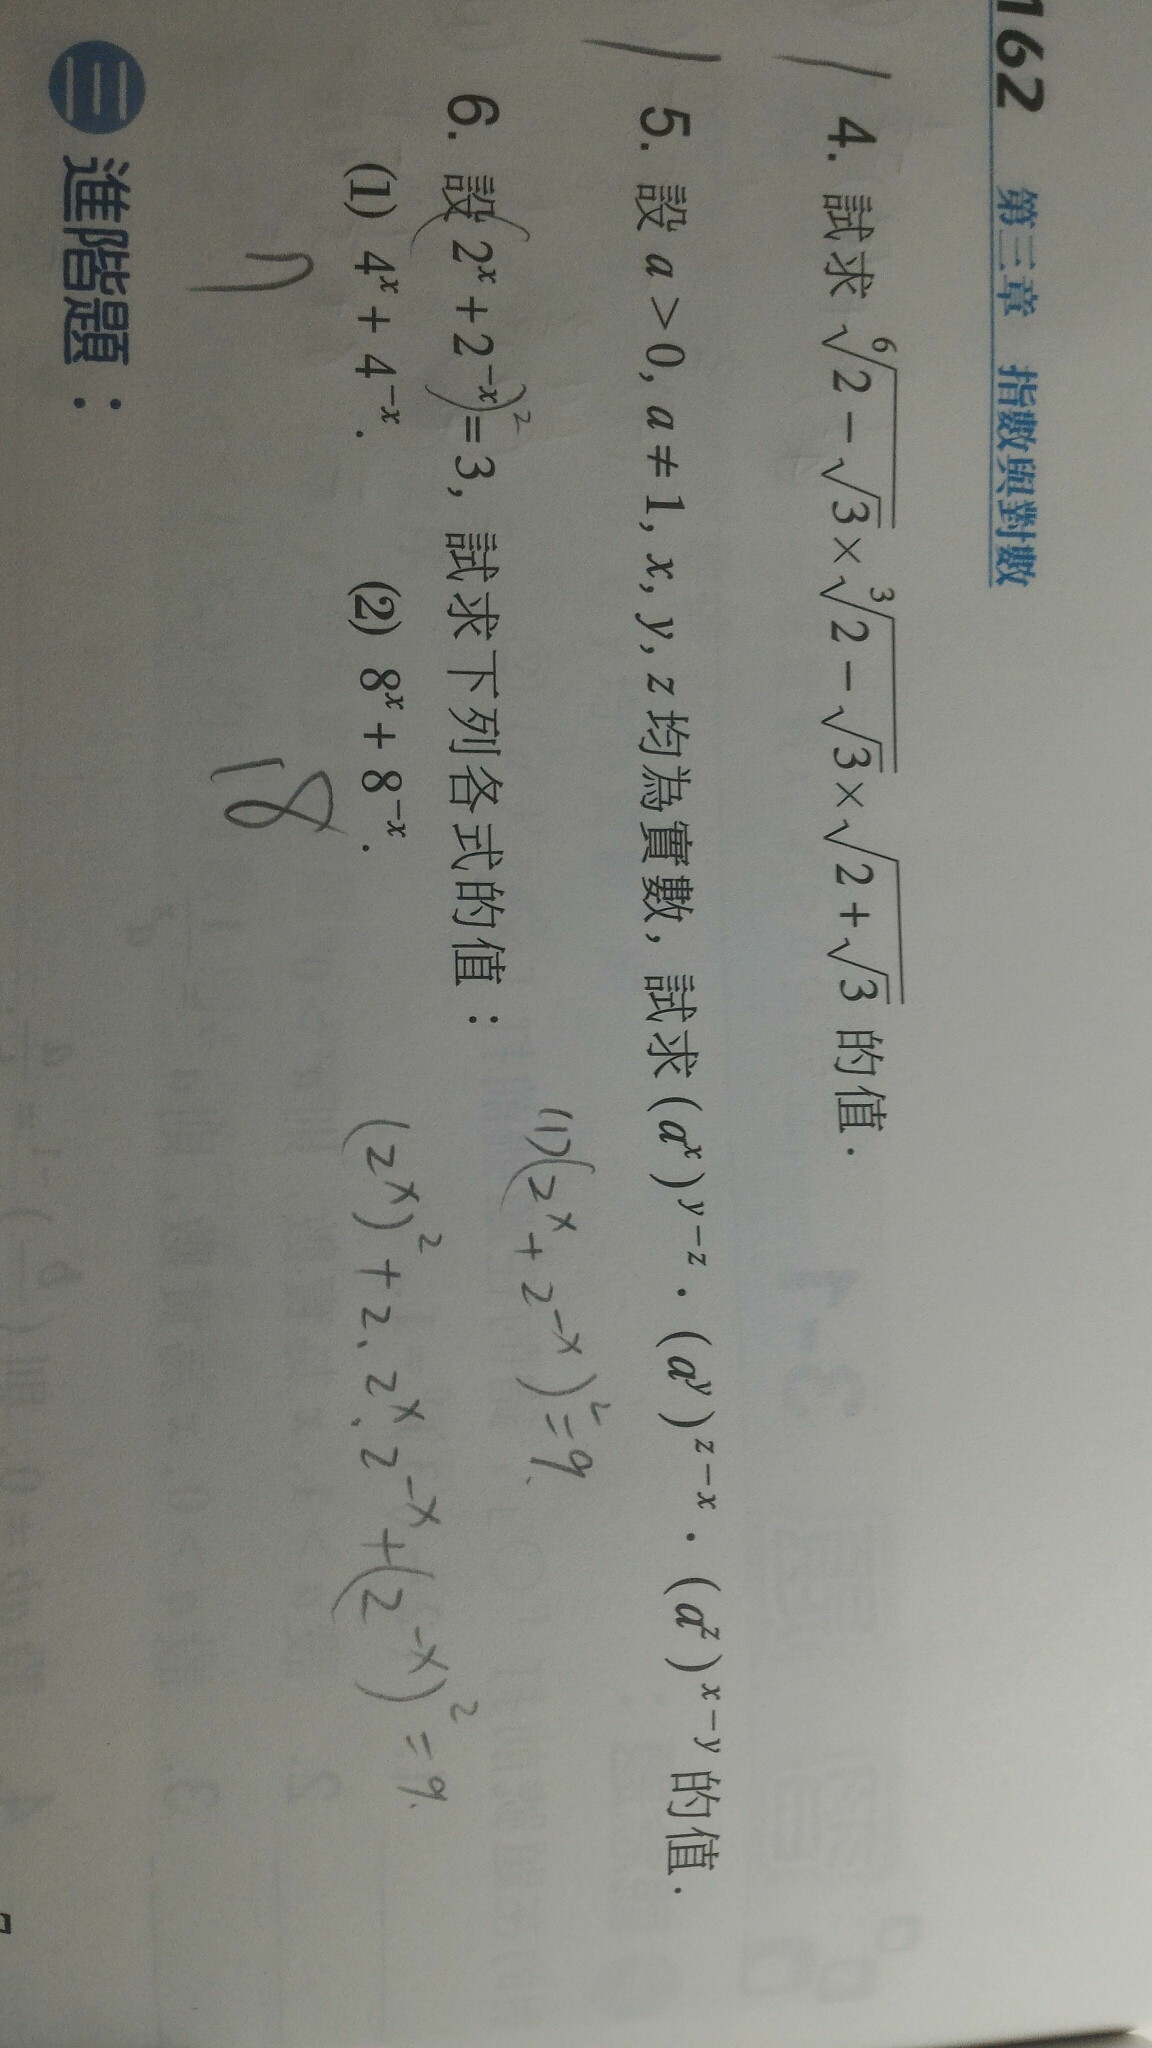 162 第三章 指數與對數
1
4. 試求 ⁶√(2−√3) × ³√(2−√3) × √(2+√3) 的值.
1
5. 設 a > 0, a ≠ 1, x, y, z 均為實數, 試求 (aˣ)ʸ⁻ᶻ · (aʸ)ᶻ⁻ˣ · (aᶻ)ˣ⁻ʸ 的值.
6. 設 (2ˣ + 2⁻ˣ)² = 3, 試求下列各式的值：
(1) 4ˣ + 4⁻ˣ. (2) 8ˣ + 8⁻ˣ.
7 18
(1) (2ˣ + 2⁻ˣ)² = 9.
(2ˣ)² + 2 · 2ˣ · 2⁻ˣ + (2⁻ˣ)² = 9.
三 進階題：